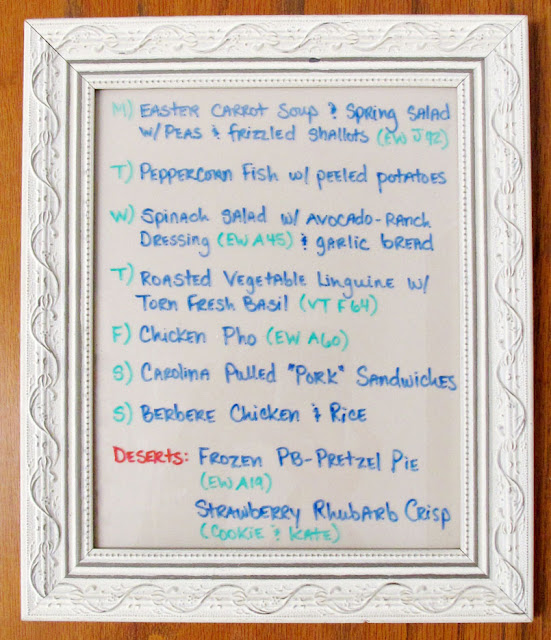 M) EASTER CARROT SOUP & SPRING SALAD
W/ PEAS & FRIZZLED SHALLOTS (EW J92)
T) PEPPERCORN FISH W/ PEELED POTATOES
W) SPINACH SALAD W/ AVOCADO-RANCH
DRESSING (EW A45) & GARLIC BREAD
T) ROASTED VEGETABLE LINGUINE W/
TORN FRESH BASIL (VT F64)
F) CHICKEN PHO (EW A60)
S) CAROLINA PULLED "PORK" SANDWICHES
S) BERBERE CHICKEN & RICE
DESERTS: FROZEN PB-PRETZEL PIE
(EW A19)
STRAWBERRY RHUBARB CRISP
(COOKIE & KATE)